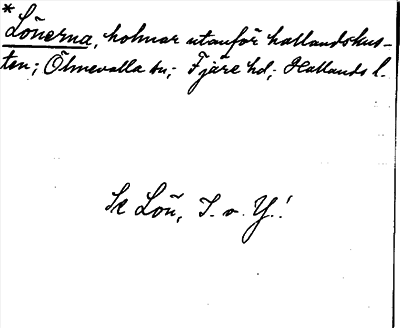 *
Lönerna, holmar utanför hallandskus-
ten; Ölmevalla sn; Fjäre hd; Hallands l.
Se Lön, I. o. Y.!